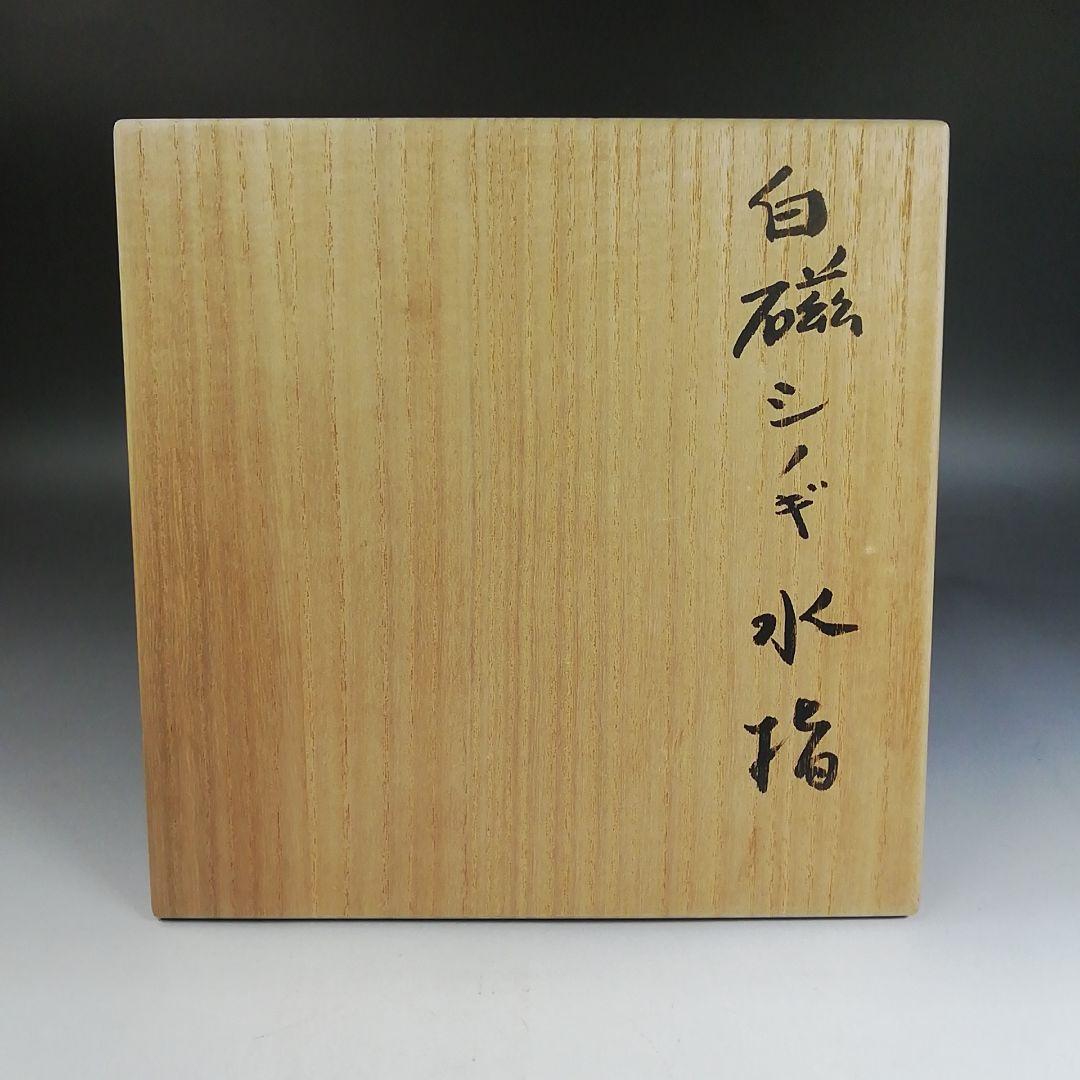 白磁シノギ水指